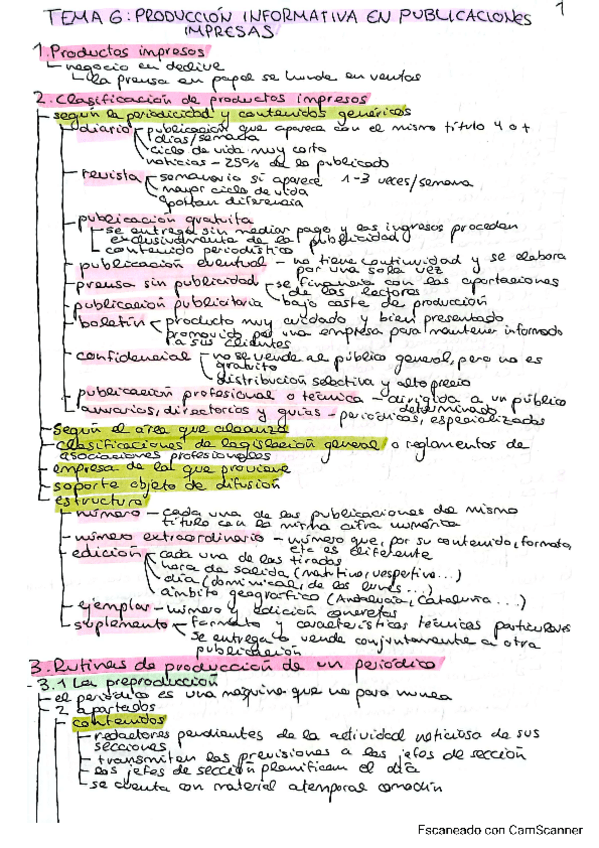 TEMA 6: PRODUCCIÓN INFORMATIVA EN PUBLICACIONES 1
IMPRESAS
1. Productos impresos
negocio en declive
la prensa en papel se hunde en ventas
2. Clasificación de productos impresos
según la periodicidad y contenidos genéricos
diario publicación que aparece con el mismo título 4 o +
días/semana
ciclo de vida muy corto
noticias - 25% de lo publicado
revista semanario si aparece 1-3 veces/semana
mayor ciclo de vida
portan diferencia
publicación gratuita
se entrega sin mediar pago y los ingresos proceden
exclusivamente de la publicidad
contenido periodístico
publicación eventual - no tiene continuidad y se elabora
por una sola vez
prensa sin publicidad se financia con las aportaciones
de los lectores
publicación publicitaria bajo coste de producción
boletín producto muy cuidado y bien presentado
promovido por una empresa para mantener informado
a sus clientes
confidencial no se vende al público general, pero no es
gratuito
distribución selectiva y alto precio
publicación profesional o técnica - dirigida a un público
determinado
anuarios, directorios y guías - periódicas, especializadas
según el área que alcanza
clasificaciones de legislación general o reglamentos de
asociaciones profesionales
empresa de la que proviene
soporte objeto de difusión
estructura
número - cada una de las publicaciones de mismo
título con la misma cifra numérica
número extraordinario - número que, por su contenido, formato,
etc es diferente
edición cada una de las tiradas
hora de salida (matutino, vespertino...)
día (dominical, de los lunes...)
ámbito geográfico (Andalucía, Cataluña...)
ejemplar - número y edición concretos
suplemento formato y características técnicas particulares
se entrega o vende conjuntamente a otra
publicación
3. Rutinas de producción de un periódico
3.1 La preproducción
el periódico es una máquina que no para nunca
2 apartados
contenidos
redactores pendientes de la actividad noticiosa de sus
secciones
transmiten las previsiones a los jefes de sección
los jefes de sección planifican el día
se cuenta con material atemporal comodín
Escaneado con CamScanner